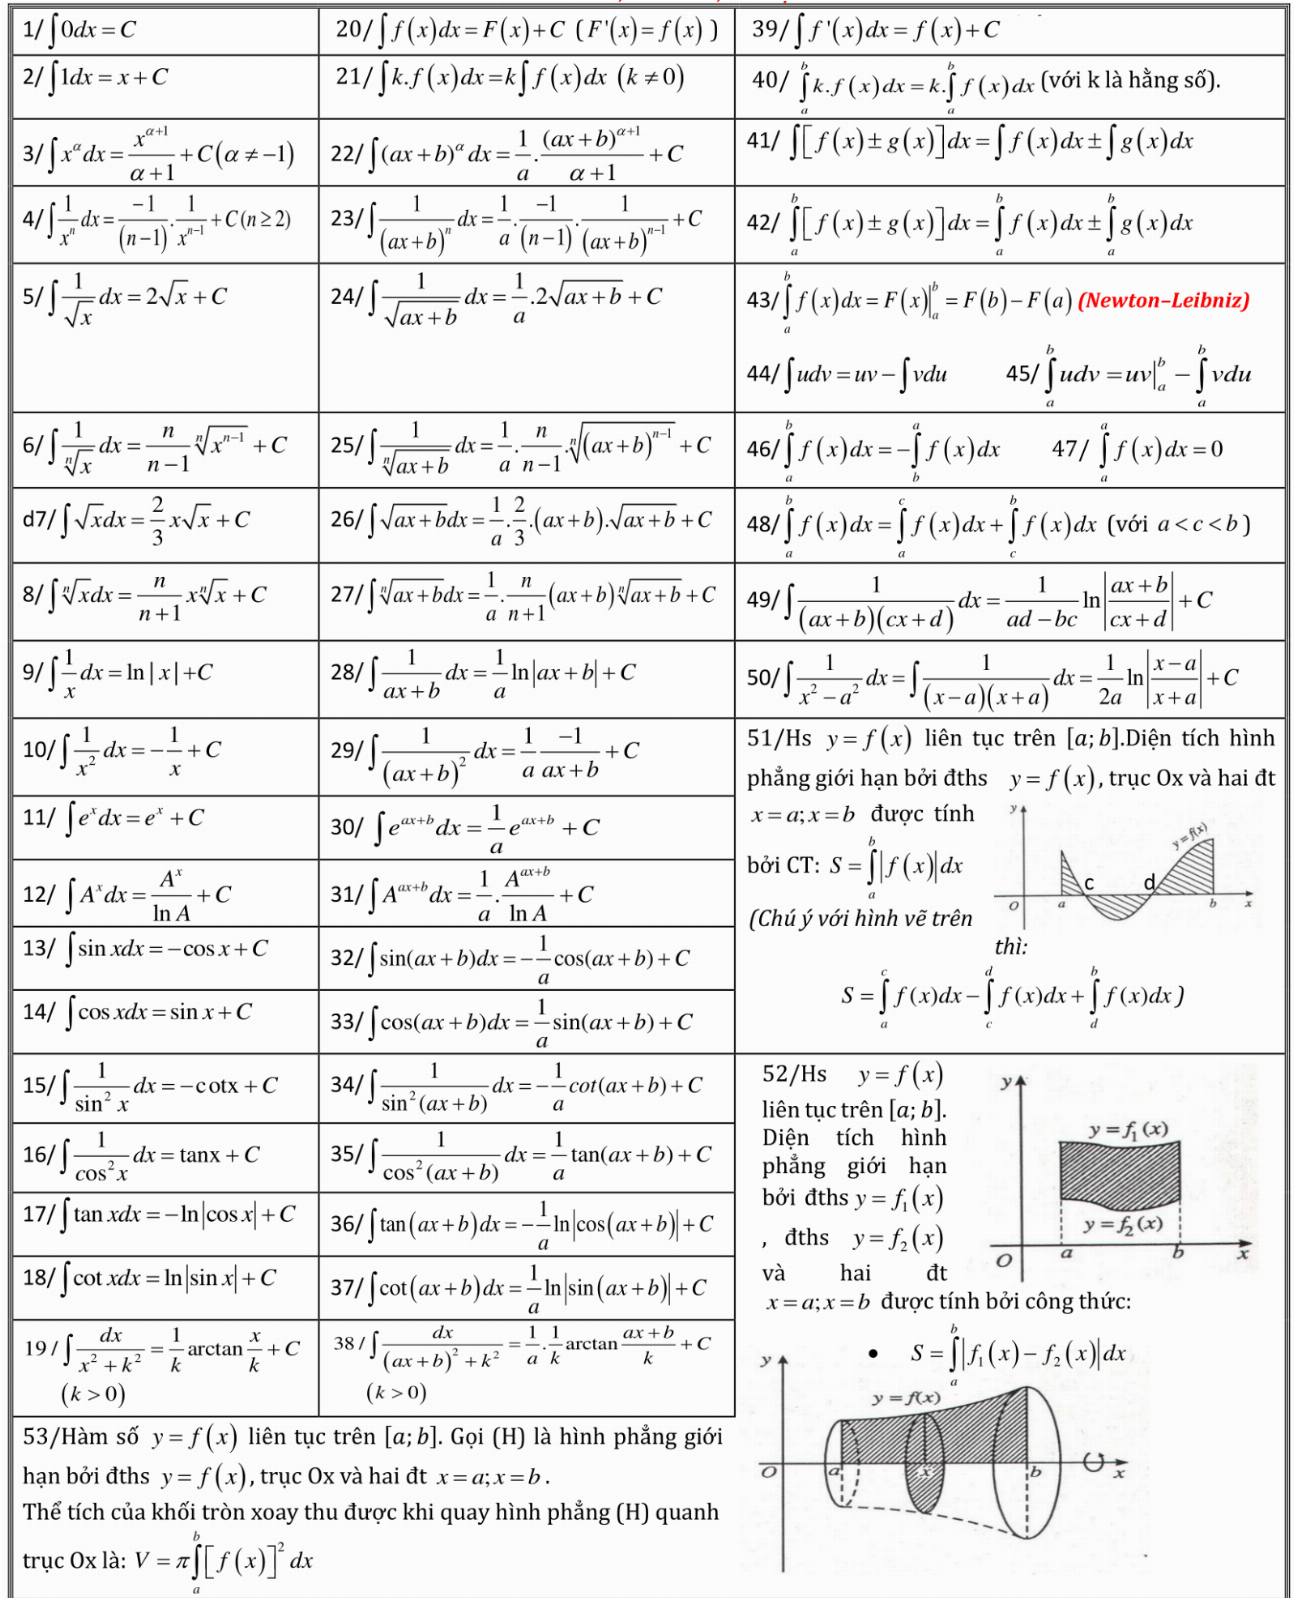 1/ ∫0dx = C
20/ ∫f(x)dx = F(x)+C (F'(x) = f(x) )
39/ ∫f'(x)dx = f(x)+C
2/ ∫1dx = x + C
21/ ∫k.f(x)dx = k∫f(x)dx (k ≠ 0)
40/ ∫_a^b k.f(x)dx = k.∫_a^b f(x)dx (với k là hằng số).
3/ ∫x^α dx = x^(α+1)/(α+1) + C(α ≠ −1)
22/ ∫(ax+b)^α dx = 1/a . (ax+b)^(α+1)/(α+1) + C
41/ ∫[f(x) ± g(x)]dx = ∫f(x)dx ± ∫g(x)dx
4/ ∫1/x^n dx = −1/(n−1) . 1/x^(n−1) + C (n ≥ 2)
23/ ∫1/(ax+b)^n dx = 1/a . −1/(n−1) . 1/(ax+b)^(n−1) + C
42/ ∫_a^b [f(x) ± g(x)]dx = ∫_a^b f(x)dx ± ∫_a^b g(x)dx
5/ ∫1/√x dx = 2√x + C
24/ ∫1/√(ax+b) dx = 1/a .2√(ax+b) + C
43/ ∫_a^b f(x)dx = F(x)|_a^b = F(b) − F(a) (Newton–Leibniz)
44/ ∫udv = uv − ∫vdu 45/ ∫_a^b udv = uv|_a^b − ∫_a^b vdu
6/ ∫1/ⁿ√x dx = n/(n−1) ⁿ√(x^(n−1)) + C
25/ ∫1/ⁿ√(ax+b) dx = 1/a . n/(n−1) . ⁿ√((ax+b)^(n−1)) + C
46/ ∫_a^b f(x)dx = −∫_b^a f(x)dx 47/ ∫_a^a f(x)dx = 0
d7/ ∫√x dx = 2/3 x√x + C
26/ ∫√(ax+b)dx = 1/a . 2/3 .(ax+b).√(ax+b) + C
48/ ∫_a^b f(x)dx = ∫_a^c f(x)dx + ∫_c^b f(x)dx (với a < c < b )
8/ ∫ⁿ√x dx = n/(n+1) xⁿ√x + C
27/ ∫ⁿ√(ax+b)dx = 1/a . n/(n+1) (ax+b)ⁿ√(ax+b) + C
49/ ∫1/((ax+b)(cx+d)) dx = 1/(ad−bc) ln|(ax+b)/(cx+d)| + C
9/ ∫1/x dx = ln | x | +C
28/ ∫1/(ax+b) dx = 1/a ln|ax+b| + C
50/ ∫1/(x²−a²) dx = ∫1/((x−a)(x+a)) dx = 1/2a ln|(x−a)/(x+a)| + C
10/ ∫1/x² dx = −1/x + C
29/ ∫1/(ax+b)² dx = 1/a −1/(ax+b) + C
51/Hs y = f(x) liên tục trên [a;b].Diện tích hình
phẳng giới hạn bởi đths y = f(x), trục Ox và hai đt
x = a; x = b được tính
bởi CT: S = ∫_a^b |f(x)|dx
(Chú ý với hình vẽ trên
thì:
S = ∫_a^c f(x)dx − ∫_c^d f(x)dx + ∫_d^b f(x)dx )
y
y=f(x)
c
d
O
a
b
x
11/ ∫e^x dx = e^x + C
30/ ∫e^(ax+b) dx = 1/a e^(ax+b) + C
12/ ∫A^x dx = A^x/ln A + C
31/ ∫A^(ax+b) dx = 1/a . A^(ax+b)/ln A + C
13/ ∫sin xdx = −cos x + C
32/ ∫sin(ax+b)dx = −1/a cos(ax+b) + C
14/ ∫cos xdx = sin x + C
33/ ∫cos(ax+b)dx = 1/a sin(ax+b) + C
15/ ∫1/sin² x dx = −cotx + C
34/ ∫1/sin²(ax+b) dx = −1/a cot(ax+b) + C
16/ ∫1/cos² x dx = tanx + C
35/ ∫1/cos²(ax+b) dx = 1/a tan(ax+b) + C
17/ ∫tan xdx = −ln|cos x| + C
36/ ∫tan(ax+b)dx = −1/a ln|cos(ax+b)| + C
18/ ∫cot xdx = ln|sin x| + C
37/ ∫cot(ax+b)dx = 1/a ln|sin(ax+b)| + C
19 / ∫dx/(x²+k²) = 1/k arctan x/k + C
(k > 0)
38 / ∫dx/((ax+b)²+k²) = 1/a . 1/k arctan (ax+b)/k + C
(k > 0)
52/Hs y = f(x)
liên tục trên [a;b].
Diện tích hình
phẳng giới hạn
bởi đths y = f₁(x)
, đths y = f₂(x)
và hai đt
x = a; x = b được tính bởi công thức:
• S = ∫_a^b |f₁(x) − f₂(x)|dx
y
y=f₁(x)
y=f₂(x)
O
a
b
x
53/Hàm số y = f(x) liên tục trên [a;b]. Gọi (H) là hình phẳng giới
hạn bởi đths y = f(x), trục Ox và hai đt x = a; x = b .
Thể tích của khối tròn xoay thu được khi quay hình phẳng (H) quanh
trục Ox là: V = π∫_a^b [f(x)]² dx
y
y=f(x)
O
a
x
b
x